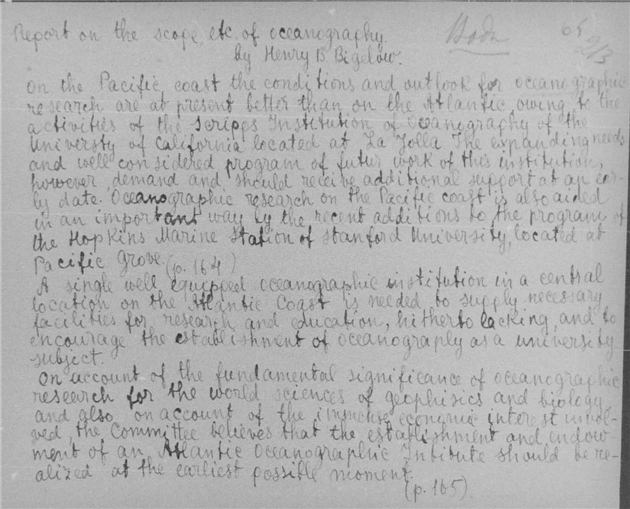 Report on the scope, etc. of oceanography.
by Henry B Bigelow.
65
2/3
On the Pacific coast the conditions and outlook for oceanographic
research are at present better than on the Atlantic, owing to the
activities of the Scripps Institution of Oceanography of the
University of California located at La Jolla The expanding needs
and well considered program of futur work of this institution,
however, demand and should receive additional support at an ear-
ly date. Oceanographic research on the Pacific coast is also aided
in an important way by the recent additions to the program of
the Hopkins Marine Station of Stanford University, located at
Pacific Grove. (p. 164)
A single well equipped oceanographic institution in a central
location on the Atlantic Coast is needed to supply necessary
facilities for research and education, hitherto lacking, and to
encourage the establishment of oceanography as a university
subject.
On account of the fundamental significance of oceanographic
research for the world sciences of geophisics and biology
and also on account of the immense economic interest invol-
ved, the Committee believes that the establishment and endow-
ment of an Atlantic Oceanographic Institute should be re-
alized at the earliest possible moment.
(p. 165)